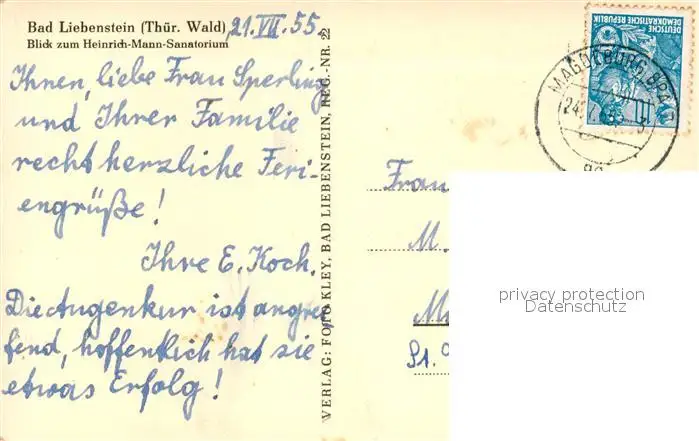 Bad Liebenstein (Thür. Wald)
21.VII.55.
Blick zum Heinrich-Mann-Sanatorium
Ihnen, liebe Frau Sperling
und Ihrer Familie
recht herzliche Feri-
engrüße!
Ihre E. Koch.
Die Augenkur ist angrei
fend, hoffentlich hat sie
etwas Erfolg!
VERLAG: FOTO KLEY, BAD LIEBENSTEIN, REG.-NR. 22
DEUTSCHE
DEMOKRATISCHE REPUBLIK
10
MAGDEBURG BPA
24
Frau
M.
privacy protection
Datenschutz